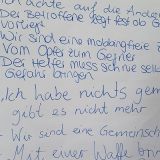 Ich achte auf die Ande
Der Betroffene legt fest ob
vorliegt
Wir sind eine mobbingfreie
Vom Opfer zum Gegner
Der Helfer muss sich nie selbst
Gefahr bringen
"Ich habe nichts gem
gibt es nicht mehr
- Wir sind eine Gemeinsch
- Mut einer Waffe